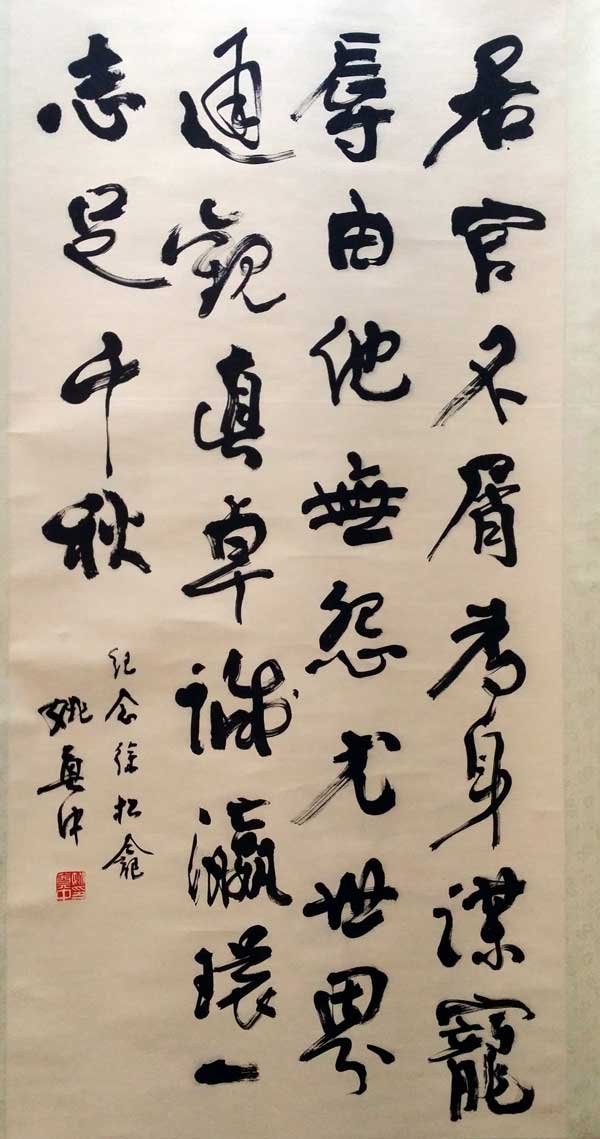 居官不屑為身謀寵
辱由他無怨尤世界
通觀真卓識瀛環一
志足千秋
纪念徐松龕
姚奠中